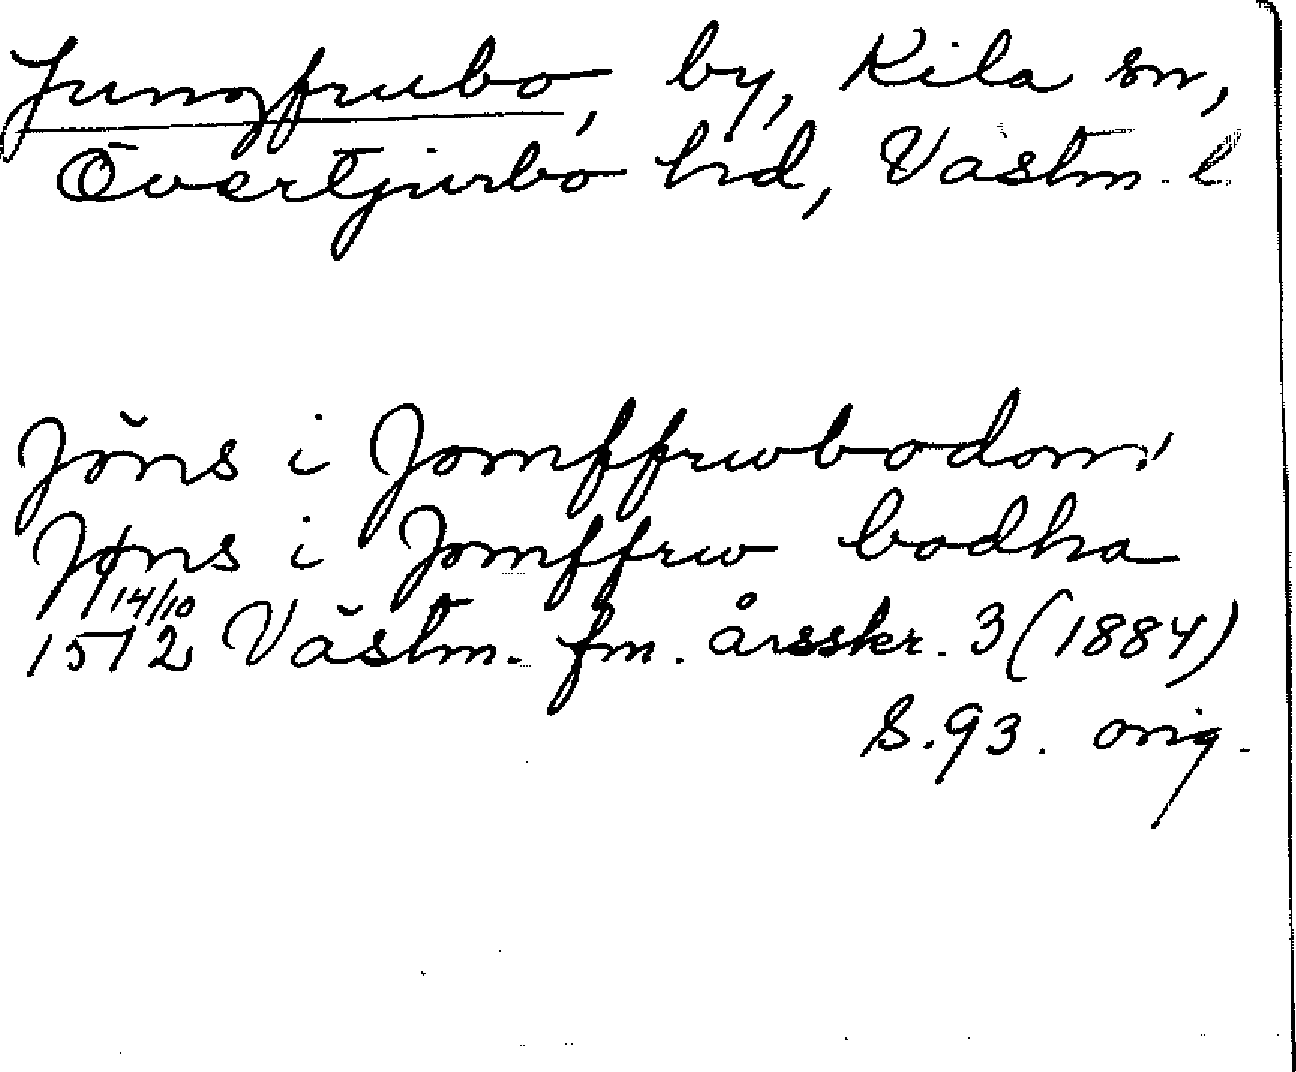 Jungfrubo, by, Kila sn,
Övertjurbo hd, Västm. l
Jöns i Jomffrwbodom;
Jøns i Jomffrw bodha
14/10
1512 Västm. fm. årsskr. 3 (1884)
S. 93. orig.